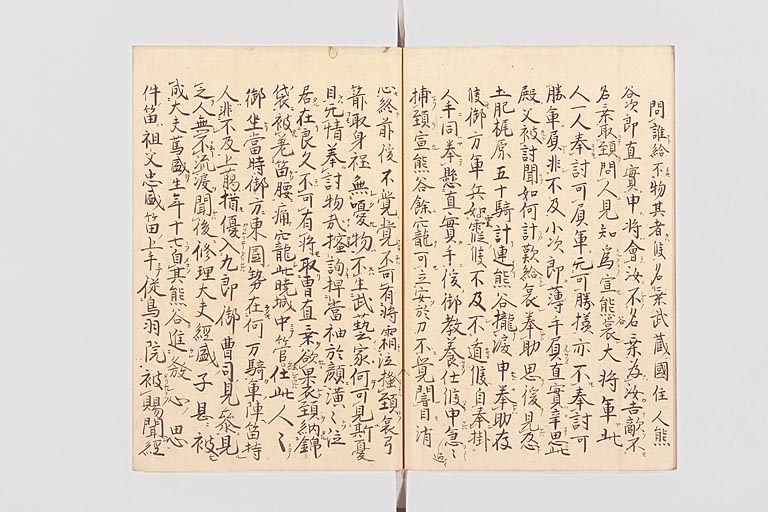 問誰給不物其者候名乗武蔵國住人熊
谷次郎直實申将會汝不名乗為汝吉敵不
名乗取頚問人見知為宣熊裳大将軍此
人一人奉討可負軍元可勝様亦不奉討可
勝軍負非不及小次郎薄手負直實辛思此
殿父被討聞如何計歎給裳奉助思後見忍
土肥梶原五十騎計連熊谷攏涙申奉助存
候御方軍兵如霞候不及不遁候自奉掛
人手同奉懸直實手後御教養仕候申急〻
捕頚宣熊谷餘窕可立安於刀不覚闇目消
心終前後不覚覚不可有将霜泣掻頚裳弓
箭取身程無憂物不生武藝家何可見斯憂
目无情奉討物哉掻詢捍當袖於顔潢〻泣
居在良久不可有将取曹直垂欲裹頚納錦
袋被差笛腰痛窕此暁城中管仕此人〻
御坐當時御方東國勢在何万騎軍陣笛持
人非不及上﨟猶優入九郎御曹司見参見
之人無不流涙聞後修理大夫經盛子息被
成大夫篤盛生年十七自其熊谷進發心思
件笛祖父忠盛笛上手從鳥羽院被賜聞經